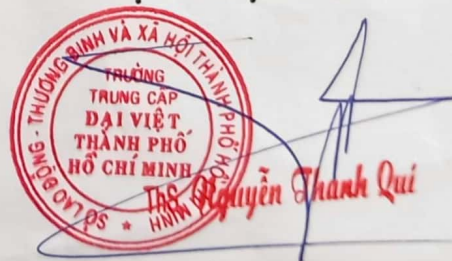 SỞ LAO ĐỘNG - THƯƠNG BINH VÀ XÃ HỘI THÀNH PHỐ HỒ CHÍ MINH
TRƯỜNG
TRUNG CẤP
ĐẠI VIỆT
THÀNH PHỐ
HỒ CHÍ MINH
ThS. Nguyễn Thanh Quí